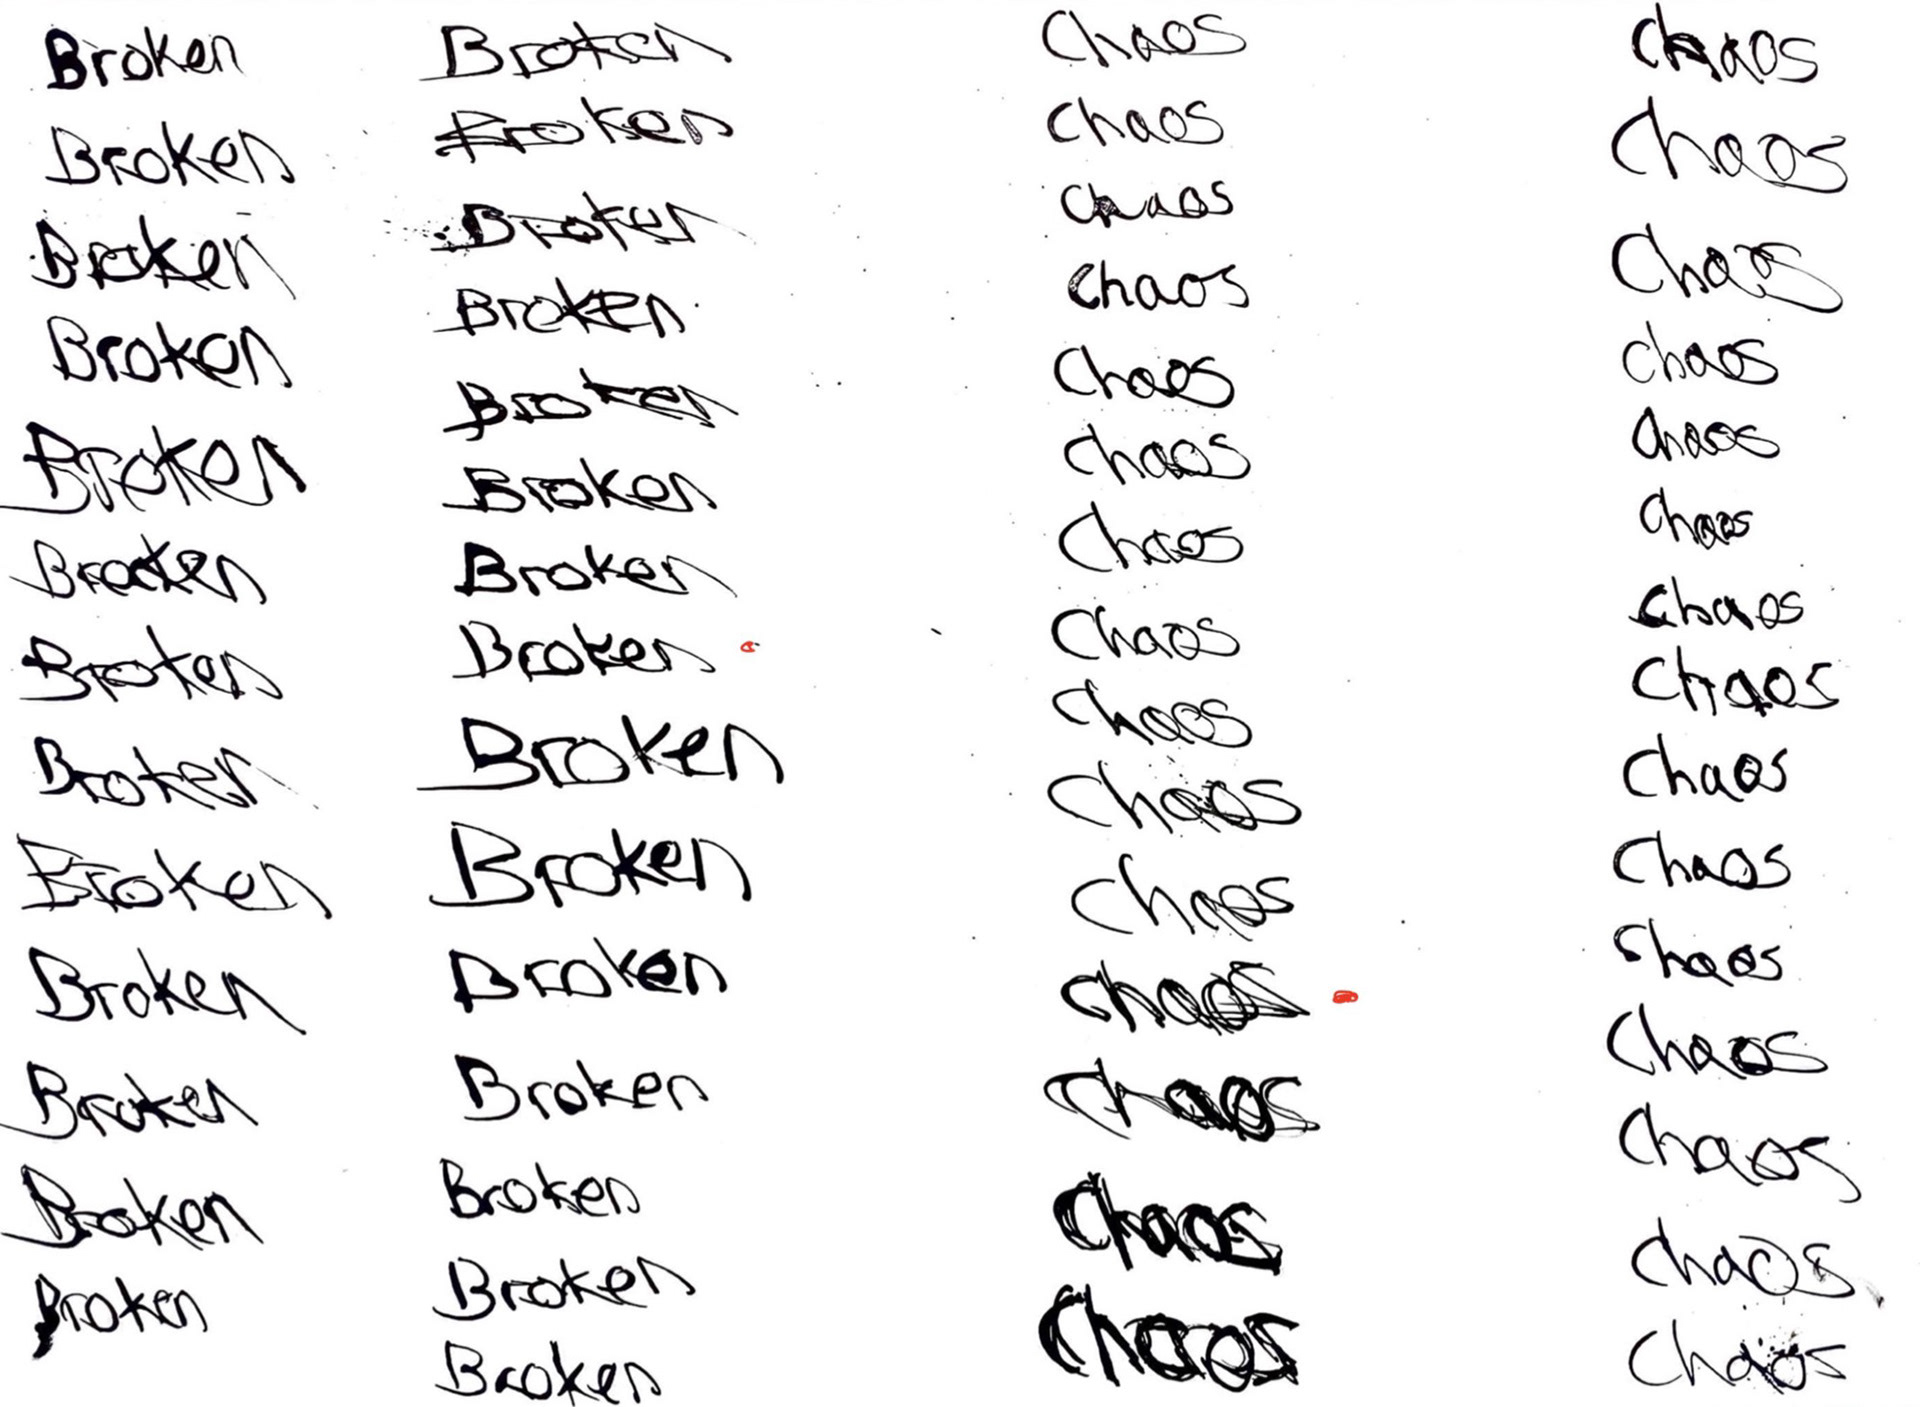 Broken
Broken
Broken
Broken
Broken
Broken
Broken
Broken
Broken
Broken
Broken
Broken
Broken
Broken
Broken
Broken
Broken
Broken
Broken
Broken
Broken
Broken
Broken
Broken
Broken
Broken
Broken
Broken
Chaos
Chaos
Chaos
Chaos
Chaos
Chaos
Chaos
Chaos
Chaos
Chaos
Chaos
Chaos
Chaos
Chaos
Chaos
Chaos
Chaos
Chaos
Chaos
Chaos
Chaos
Chaos
Chaos
Chaos
Chaos
Chaos
Chaos
Chaos
Chaos
Chaos